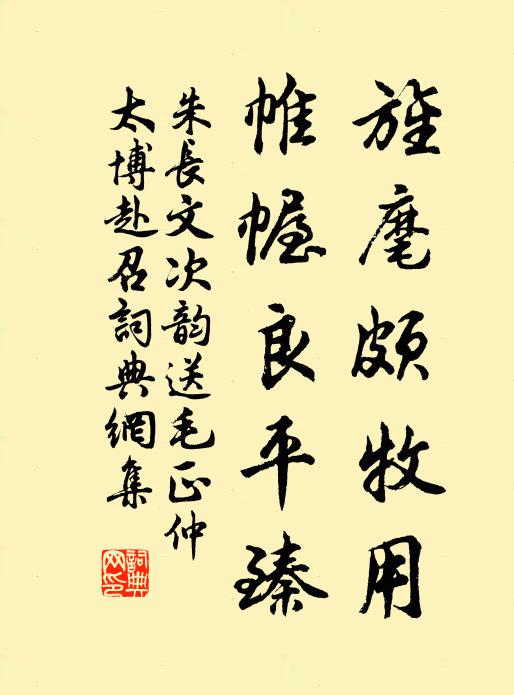 旌麾頗牧用
帷幄良平臻
朱長文次韵送毛正仲
太博赴召詞典網集
詞典网印